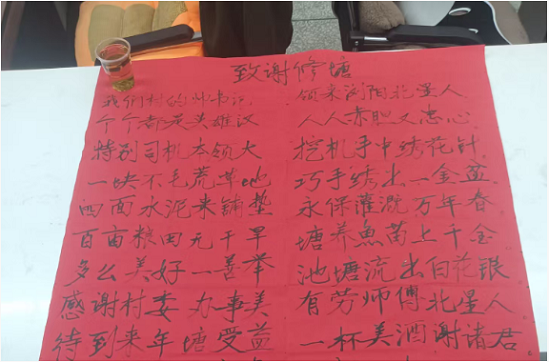 致谢修塘
我们村的帅书记 领来浏阳北星人
个个都是英雄汉 人人赤胆又忠心
特别司机本领大 挖机手中绣花针
一块不毛荒草地 巧手绣出一金盆
四面水泥来铺垫 永保灌溉万年春
百亩粮田无干旱 塘养魚苗上千金
多么美好一善举 池塘流出白花银
感谢村委办事美 有劳师傅北星人
待到来年塘受益 一杯美酒谢诸君